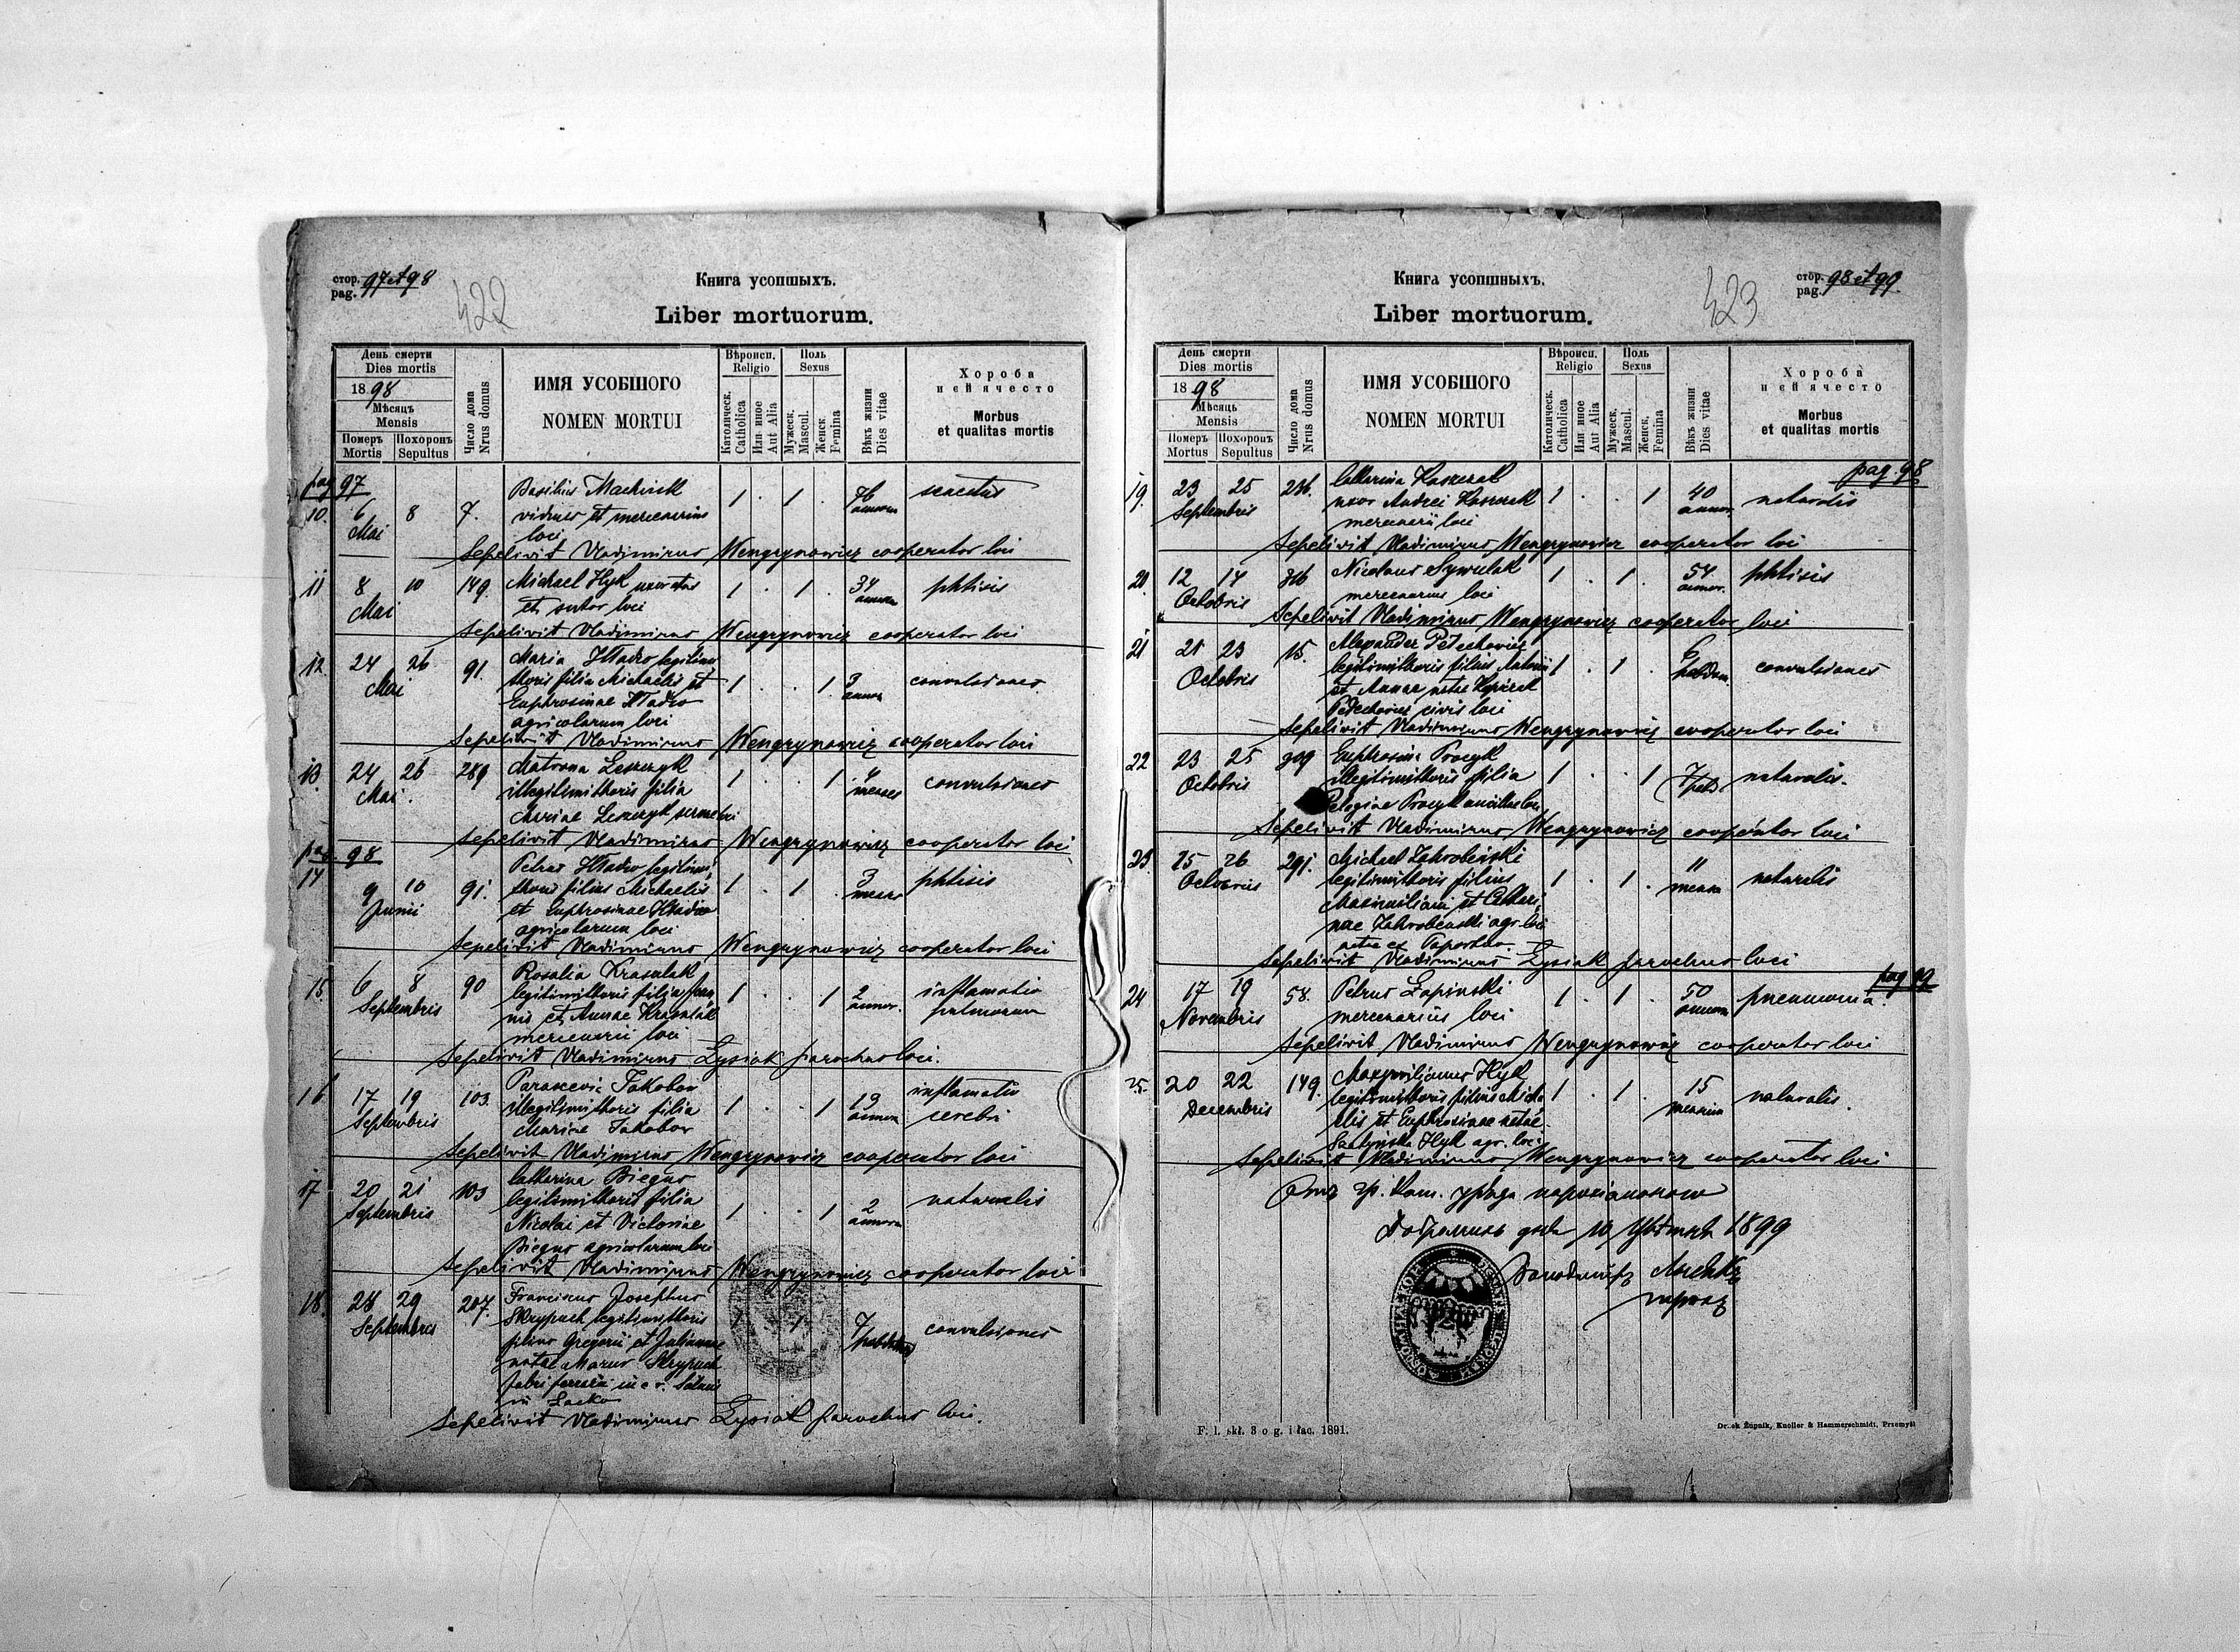 стор. pag. 97 et 98
422
Книга усопшыхъ.
Liber mortuorum.
День смерти
Dies mortis
1898
Мѣсяцъ
Mensis
Померъ Похоронъ
Mortis Sepultus
Число дома
Nrus domus
ИМЯ УСОБШОГО
NOMEN MORTUI
Вѣроисп.
Religio
Католическ.
Catholica
Или иное
Aut Alia
Поль
Sexus
Мужеск.
Mascul.
Женск
Femina
Вѣкъ жизни
Dies vitae
Хороба
и ей ячесто
Morbus
et qualitas mortis
pag 97
10. 6 8 7. Basilius 1 . 1 . 76 senectus
Mai viduus et mercenarius annorum
loci
Sepelivit Vladimirus Wengrynowicz cooperator loci
11 8 10 149. Michael Hyk uxoratus 1 . 1 . 34 phtisis
Mai et sutor loci annorum
Sepelivit Vladimirus Wengrynowicz cooperator loci
12. 24 26 91. Maria legitimi 1 . . 1 3 convulsiones
Mai thoris filia Michaelis et
Euphrosinae
agricolarum loci
Sepelivit Vladimirus Wengrynowicz cooperator loci
13. 24 26 289 Matrona Leszczyk 1 . . 1 4 convulsiones
Mai. illegitimi thoris filia menses
Mariae Leszczyk
Sepelivit Vladimirus Wengrynowicz cooperator loci
pag. 98
14 9 10 91. Petrus legitimi 1 . 1 . 3 phtisis
Junii thori filius Michaelis
et Euphrosinae
agricolarum loci
Sepelivit Vladimirus Wengrynowicz cooperator loci
15. 6 8 90 Rosalia Krasulak 1 . . 1 2 inflamatio
Septembris legitimi thoris filia Joan annor. pulmonum
nis et Annae Krasulak
mercenarii loci
Sepelivit Vladimirus Lysiak parochus loci.
16 17 19 103. Parascevia Jakobow 1 . . 1 19 inflamatio
Septembris illegitimi thoris filia annorum cerebri
Mariae Jakobow
Sepelivit Vladimirus Wengrynowicz cooperator loci
17 20 21 103 Catharina Biegus 1 . . 1 2 naturalis
Septembris legitimi thoris filia
Nicolai et Victoriae
Biegus agricolarum loci
Sepelivit Vladimirus Wengrynowicz cooperator loci
18. 28 29 207. Franciscus Josephus 1 . 1 . 7 convulsiones
Septembris Skrypuch legitimi thoris
filius Gregorii et Julianae
natae Skrypuch
fabri ferrarii in
in Lacko
Sepelivit Vladimirus Lysiak parochus loci.
Книга усопшныхъ.
Liber mortuorum.
423
стор. pag. 98 et 99.
День смерти
Dies mortis
1898
Мѣсяцъ
Mensis
Померъ Похоронъ
Mortus Sepultus
Число дома
Nrus domus
ИМЯ УСОБШОГО
NOMEN MORTUI
Вѣроисп.
Religio
Католическ.
Catholica
Или иное
Aut Alia
Поль
Sexus
Мужеск.
Mascul.
Женск.
Femina
Вѣкъ жизни
Dies vitae
Хороба
и ей ячесто
Morbus
et qualitas mortis
pag. 98
19. 23 25 236. Catharina 1 . . 1 40 naturalis
Septembris uxor Andrei annor.
mercenarii loci
Sepelivit Vladimirus Wengrynowicz cooperator loci
20. 12 14 Nicolaus Sywulak 1 . 1 . 54 phtisis
Octobris mercenarius loci annor.
Sepelivit Vladimirus Wengrynowicz cooperator loci
21 21 23 15. Alexander 1 . 1 . 6 convulsiones
Octobris legitimi thoris filius Antonii hebdom.
et Annae natae
civis loci
Sepelivit Vladimirus Wengrynowicz cooperator loci
22 23 25 309 Euphrosina Procyk 1 . . 1 7 naturalis.
Octobris illegitimi thoris filia
Pelagiae Procyk ancillae loci
Sepelivit Vladimirus Wengrynowicz cooperator loci
23. 25 26 291. Michael 1 . 1 . 11 naturalis
Octobris legitimi thoris filius
Maximiliani et Cathari
nae agr. loci
natae
Sepelivit Vladimirus Lysiak parochus loci
pag 99
24 17 19 58. Petrus Lapinski 1 . 1 . 50 pneumonia.
Novembris mercenarius loci annorum
Sepelivit Vladimirus Wengrynowicz cooperator loci
25. 20 22 149. Maxymilianus Hyk 1 . 1 . 15 naturalis.
Decembris legitimi thoris filius Micha
elis et Euphrosinae natae
Hyk agr. loci
Sepelivit Vladimirus Wengrynowicz cooperator loci
гр. кат. уряда
Добромиль дня 10 1899
F. l. skł. 3 o g. i łac. 1891.
Druk Żupnik, Knoller & Hammerschmidt, Przemyśl